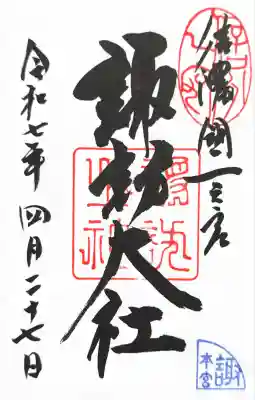 信濃國一之宮
諏訪大社
令和七年 四月二十七日
諏
本宮